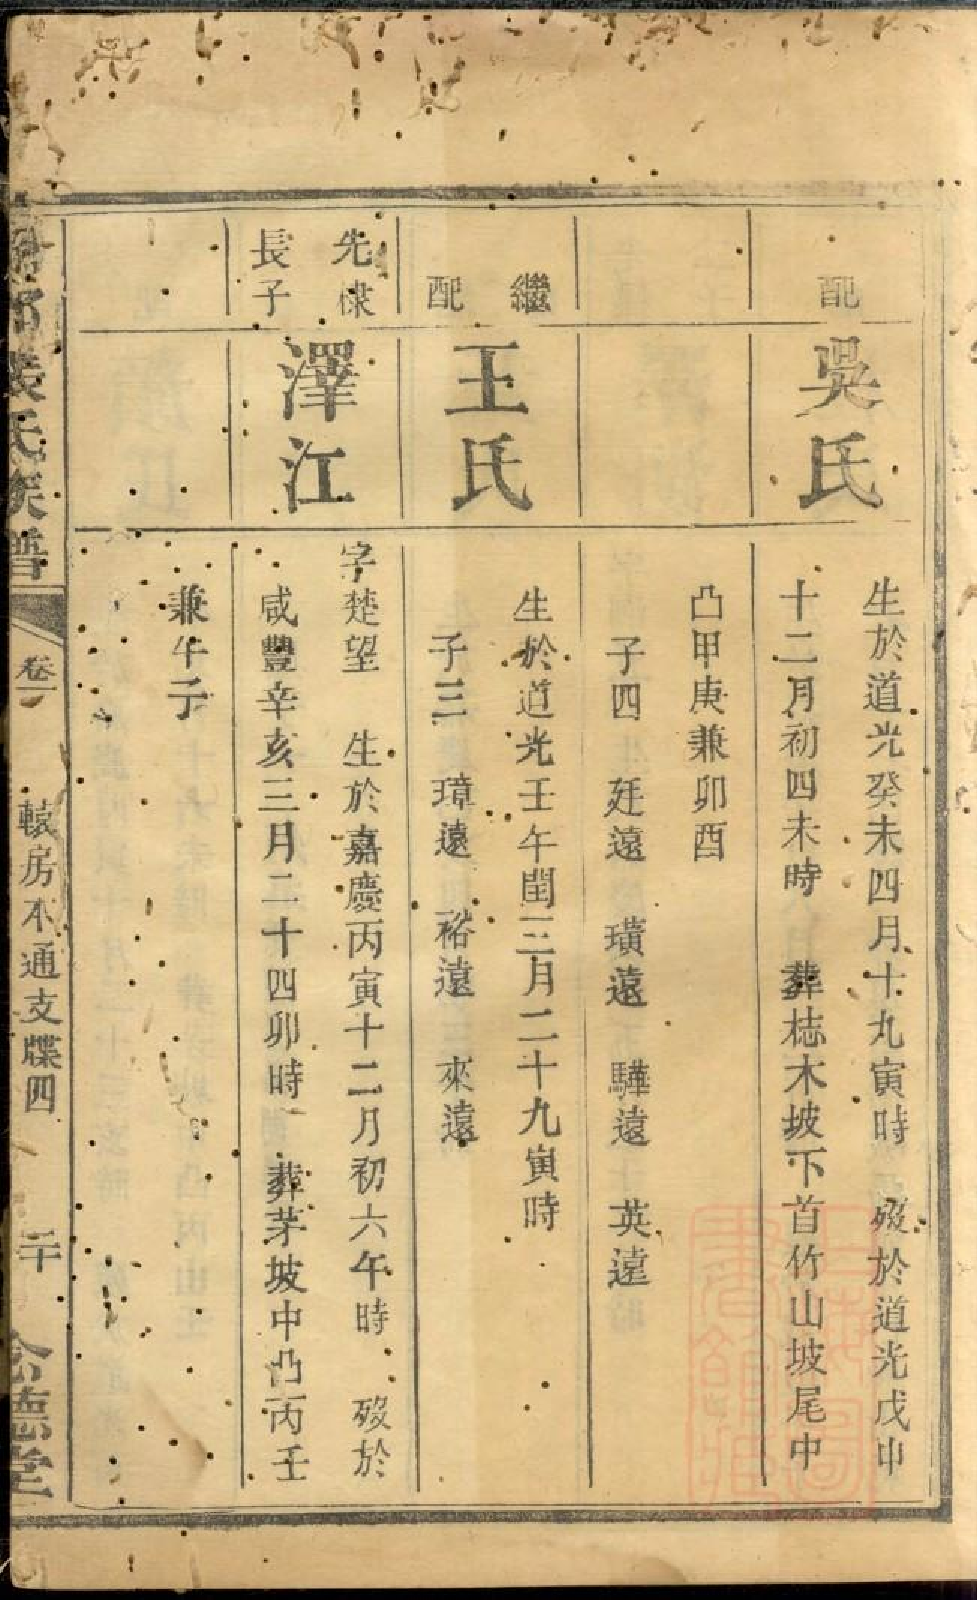 配
吳氏
生於道光癸未四月十九寅時 歿於道光戊申
十二月初四未時 葬梽木坡下首竹山坡尾中
凸甲庚兼卯酉
子四 廷遠 璜遠 驊遠 英遠
繼
配
王氏
生於道光壬午閏三月二十九寅時
子三 璋遠 裕遠 來遠
先棣
長子
澤江
字楚望 生於嘉慶丙寅十二月初六午時 歿於
咸豐辛亥三月二十四卯時 葬茅坡中凸丙壬
兼午子
氏族譜
卷一
轅房本通支牒四
二十
德堂